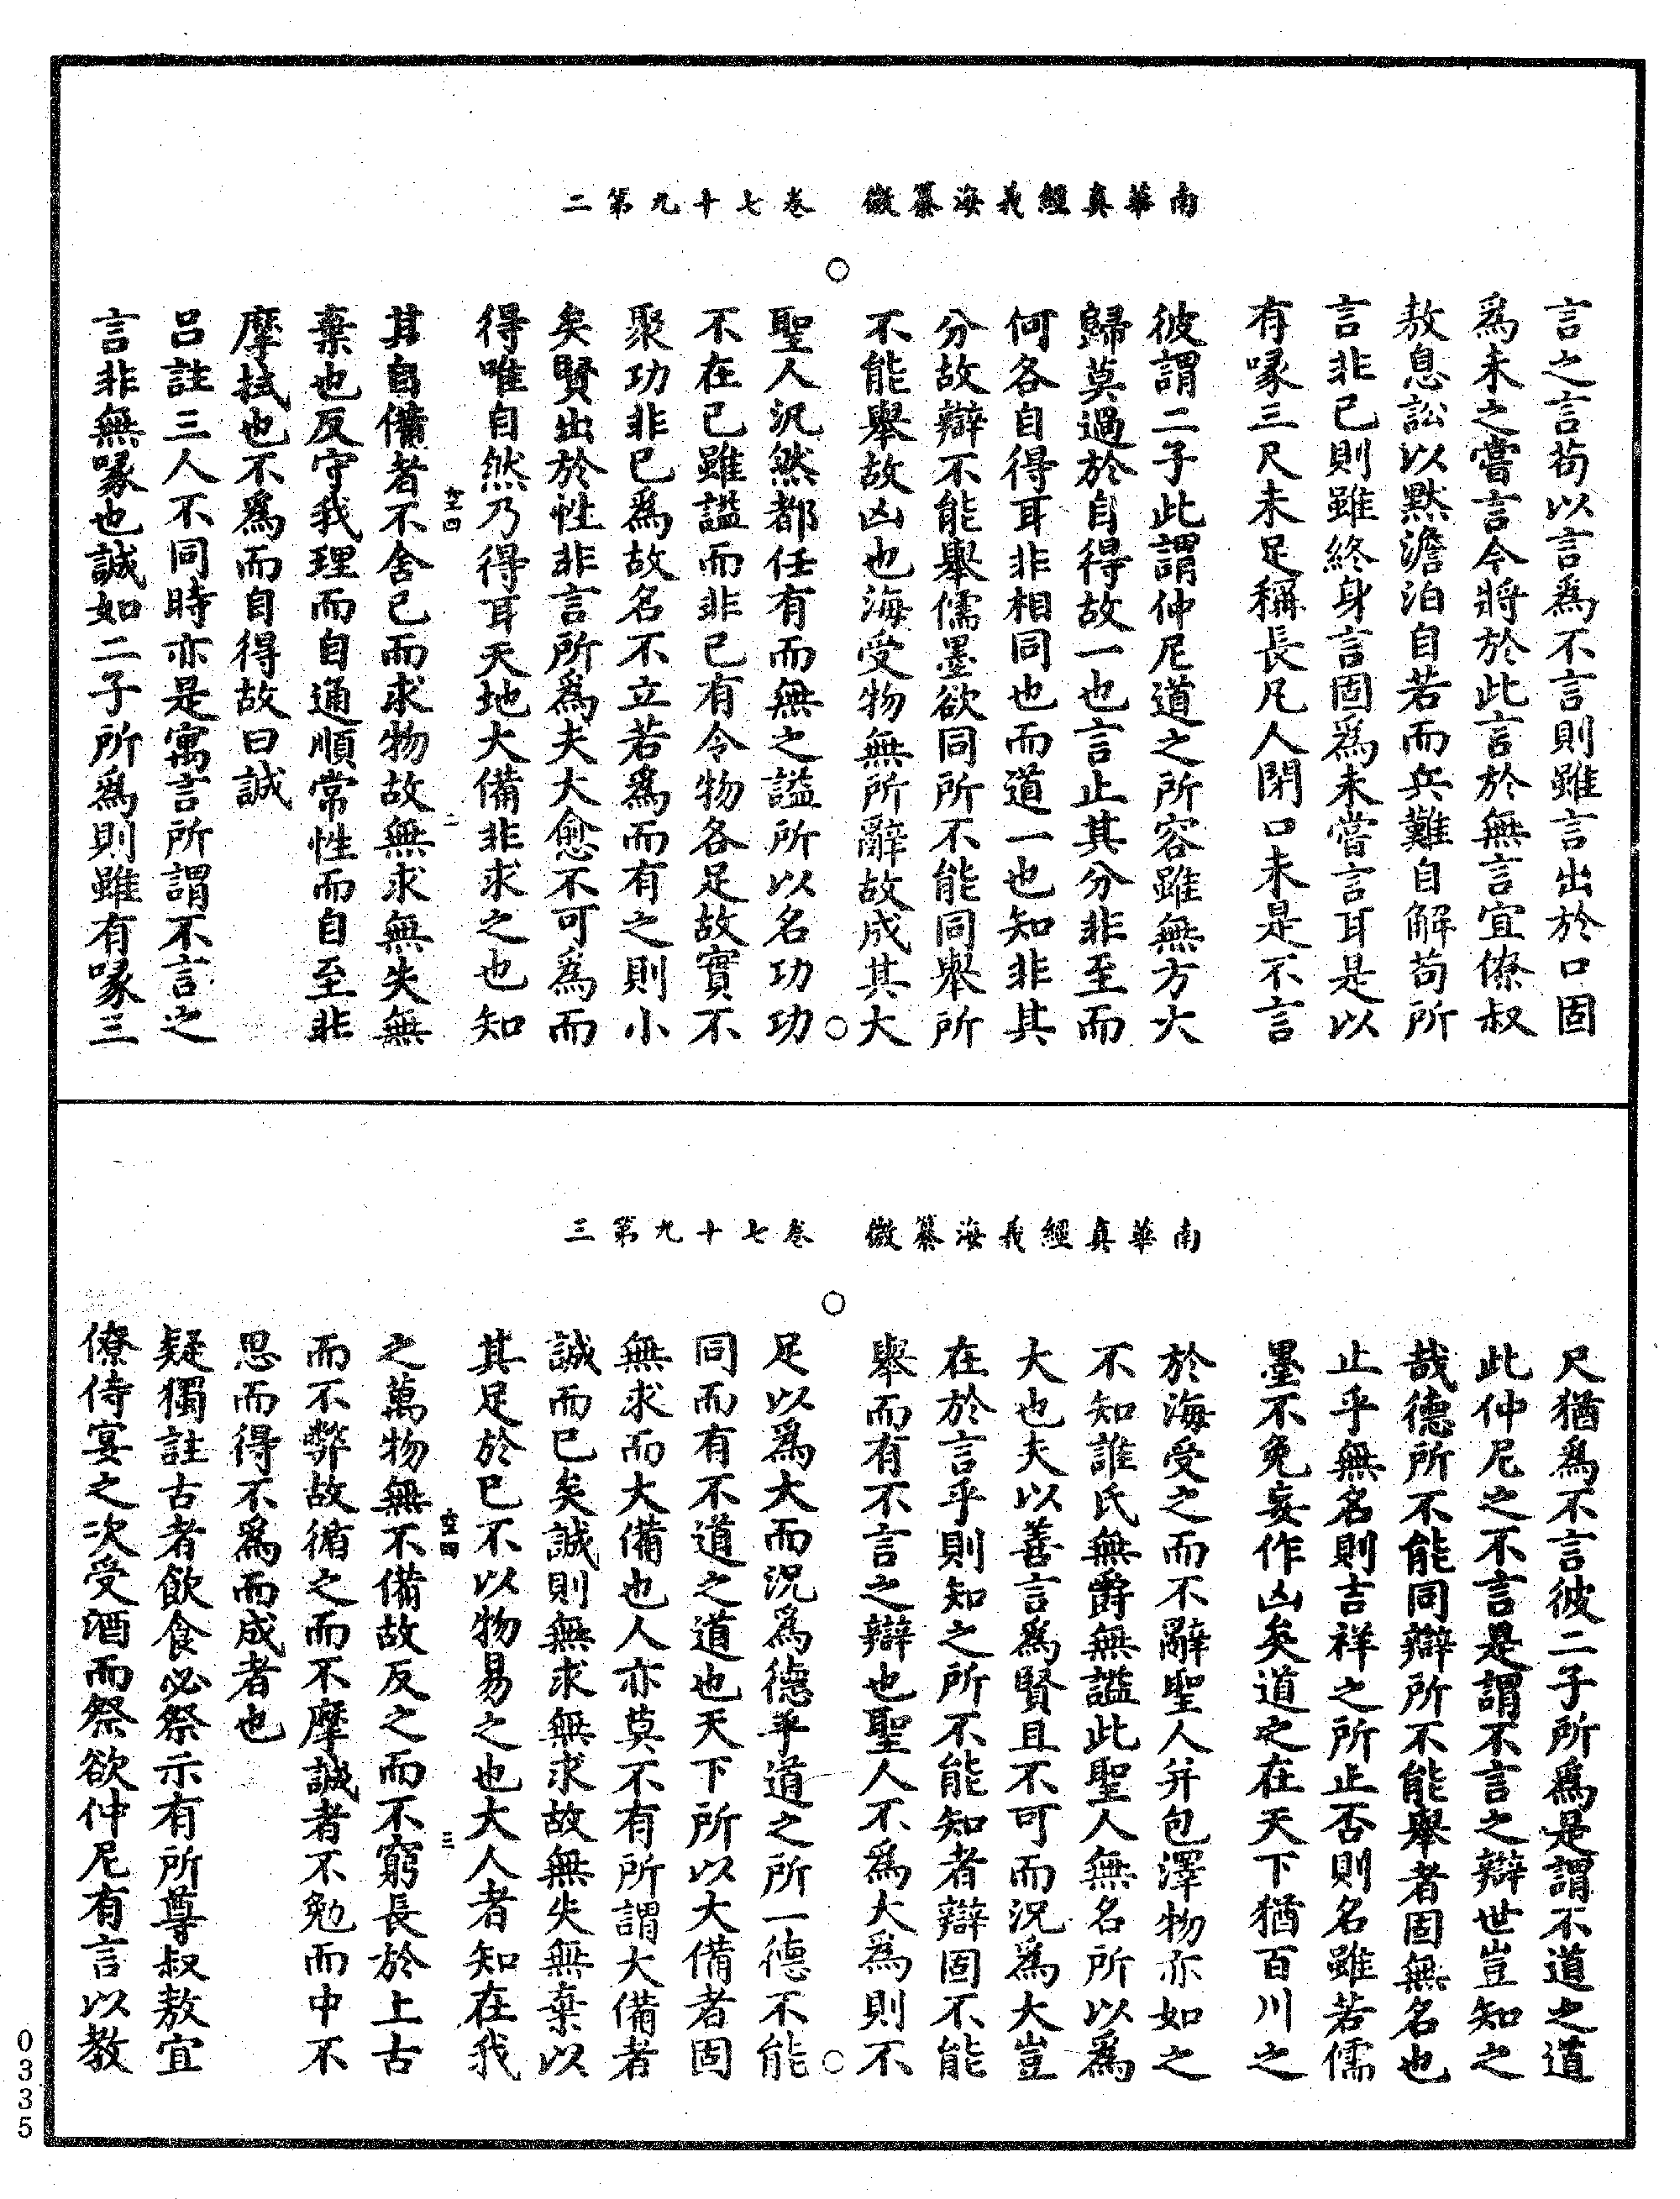 南華真經義海纂微　卷七十九第二
言之言苟以言爲不言則雖言出於口固
爲未之嘗言今將於此言於無言宜僚叔
敖息訟以默澹泊自若而兵難自解苟所
言非己則雖終身言固爲未嘗言耳是以
有喙三尺未足稱長凡人閉口未是不言
彼謂二子此謂仲尼道之所容雖無方大
歸莫過於自得故一也言止其分非至而
何各自得耳非相同也而道一也知非其
分故辯不能舉儒墨欲同所不能同舉所
不能舉故凶也海受物無所辭故成其大
聖人汎然都任有而無之謚所以名功功
不在已雖謚而非已有令物各足故實不
聚功非已爲故名不立若爲而有之則小
矣賢出於性非言所爲夫大愈不可爲而
得唯自然乃得耳天地大備非求之也知
二
其自備者不舍己而求物故無求無失無
棄也反守我理而自通順常性而自至非
摩拭也不爲而自得故曰誠
呂註三人不同時亦是寓言所謂不言之
言非無喙也誠如二子所爲則雖有喙三
南華真經義海纂微　卷七十九第三
尺猶爲不言彼二子所爲是謂不道之道
此仲尼之不言是謂不言之辯世豈知之
哉德所不能同辯所不能舉者固無名也
止乎無名則吉祥之所止否則名雖若儒
墨不免妄作凶矣道之在天下猶百川之
於海受之而不辭聖人并包澤物亦如之
不知誰氏無爵無謚此聖人無名所以爲
大也夫以善言爲賢且不可而況爲大豈
在於言乎則知之所不能知者辯固不能
舉而有不言之辯也聖人不爲大爲則不
足以爲大而況爲德乎道之所一德不能
同而有不道之道也天下所以大備者固
無求而大備也人亦莫不有所謂大備者
誠而已矣誠則無求無求故無失無棄以
其足於已不以物易之也大人者知在我
三
之萬物無不備故反之而不窮長於上古
而不弊故循之而不摩誠者不勉而中不
思而得不爲而成者也
疑獨註古者飲食必祭示有所尊叔敖宜
僚侍宴之次受酒而祭欲仲尼有言以教
0335